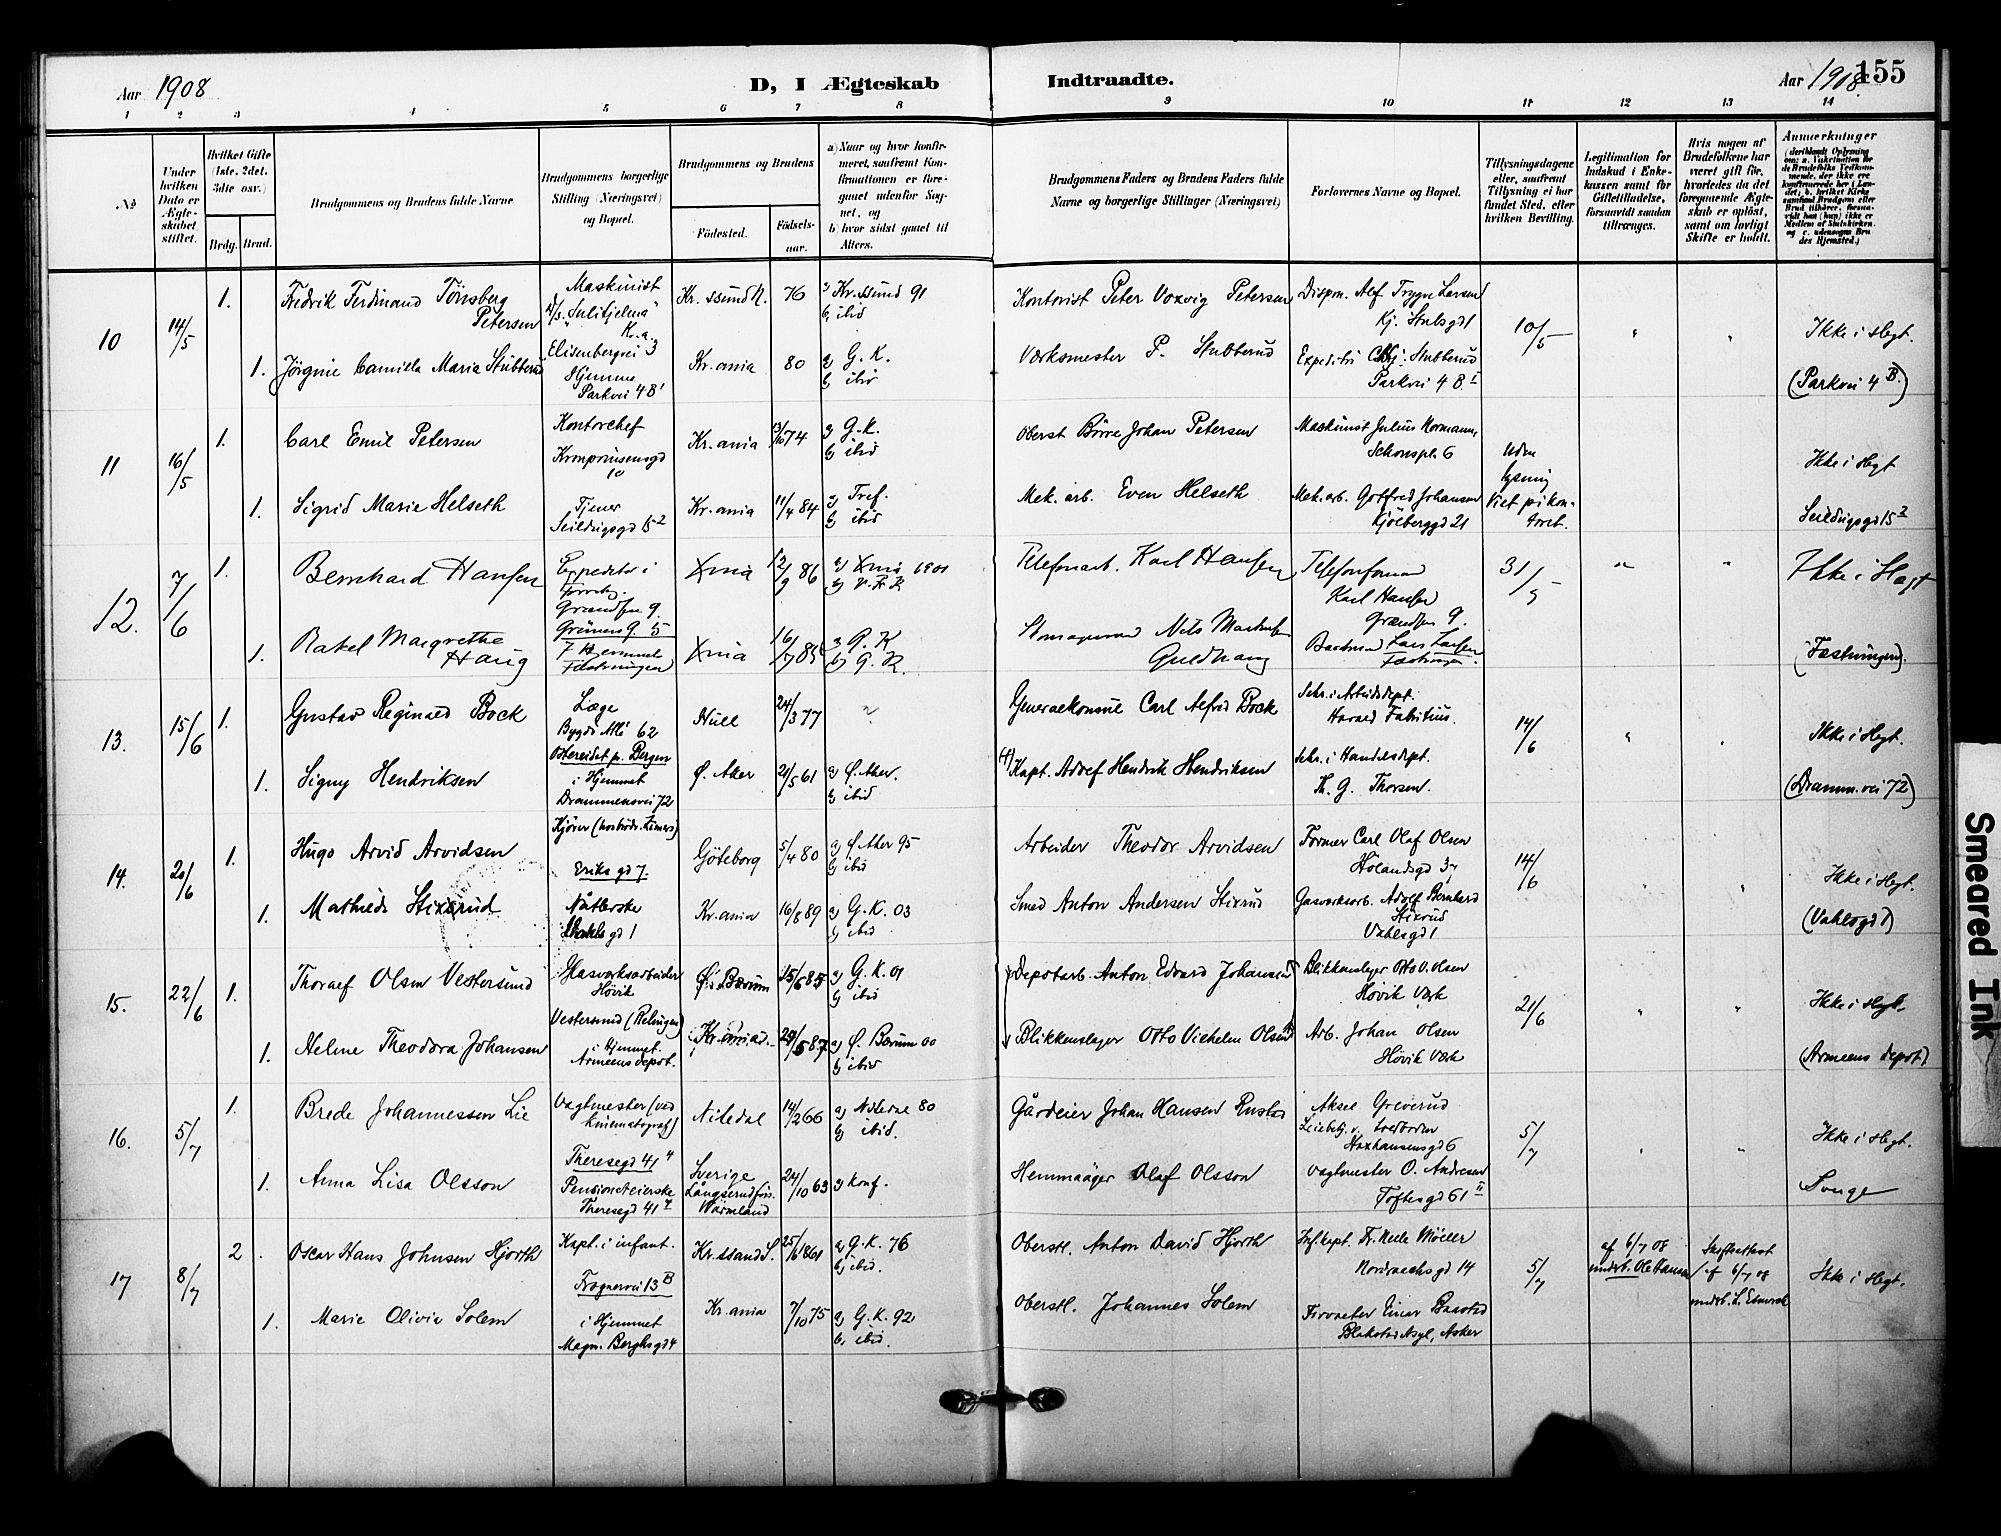 Aar 1908
D, I Ægteskab
Indtraadte.
Aar 1908
155
1 2 3 4 5 6 7 8
9 10 11 12 13 14
No
Under hvilken Dato er Ægteskabet stiftet.
Hvilket Gifte (1ste, 2det, 3die osv.)
Brdg. Brud.
Brudgommens og Brudens fulde Navne
Brudgommens borgerlige Stilling (Næringsvei) og Bopæl.
Brudgommens og Brudens
Fødested.
Fødselsaar.
a) Naar og hvor konfirmeret, saafremt Konfirmationen er foregaaet udenfor Sognet, og
b) hvor sidst gaaet til Alters.
Brudgommens Faders og Brudens Faders fulde Navne og borgerlige Stillinger (Næringsvei)
Forlovernes Navne og Bopæl.
Tillysningsdagene eller, saafremt Tillysning ei har fundet Sted, efter hvilken Bevilling.
Legitimation for Indskud i Enkekassen samt for Giftetilladelse, forsaavidt saadan tiltrænges.
Hvis nogen af Brudefolkene har været gift før, hvorledes da det foregaaende Ægteskab er opløst, samt om lovligt Skifte er holdt.
Anmerkninger
10
14/5
1.
Fredrik Ferdinand Tönsberg
Petersen
Maskinist
D/s. "Sulitjelma"
Kr.a.
Elisenbergvei 3
Kr.ssund N.
76
a) Kr.ssund 91
b) ibid
Kontorist Peter Voxvig Petersen
Dispon. Alof Trygve Larsen
Kj. Stubsgd 1
10/5
Ikke i slegt.
1.
Jörgine Camilla Maria Stubberud
Hjemme
Parkvei 4 B'
Kr.ania
80
a) G.K.
b) ibid
Værksmester P. Stubberud
Expeditri Chr. Stubberud
Parkvei 4 B. I
(Parkvei 4 B.)
11
16/5
1.
Carl Emil Petersen
Kontorchef
Kronprinsensgd
10
Kr.ania
13/10 74
a) G.K.
b) ibid
Oberst Börre Johan Petersen
Maskinist Julius Normann,
Schouspl. 6
Uden
lysning
Viet på kon-
toret.
Ikke i slegt
1.
Sigrid Marie Helseth
Tjener
Seildugsgd 15 2
Kr.ania
11/4 84
a) Tref.
b) ibid
Mek. arb. Even Helseth
Mek. arb. Gotfred Johansen
Kjölberggd 21
Seildugsgd 15 2
12.
7/6
1.
Bernhard Hansen
Expeditør i
Grændsen 9.
Grüners g. 5
Xnia
12/9 86
a) Xnia 1901
b) V. F. K
Telefonarb. Karl Hansen
Telefonformand
Karl Hansen
Grændsen 9.
31/5
Ikke i Slægt
1.
Rakel Margrethe
Haug
Hjemme
Fæstningen
Xnia
16/7 85
a) G.K
b) G.K.
Nils Martinsen
Guldhaug
Lars Larsen
Fæstningen.
(Fæstningen).
13.
15/6
1.
Gustav Reginald Bock
Læge
Bygdö Allé 62
Ostereidet p. Bergen
Hull
24/3 77
Generalkonsul Carl Alfred Bock
Sekr. i Arbeidsdept.
Harald Fabritius.
14/6
Ikke i slegt.
1.
Signy Hendriksen
i Hjemmet
Drammensvei 72
Ø. Aker
21/5 61
a) Ø. Aker.
b) ibid
(†) Kapt. Adolf Hendrik Hendriksen
Sekr. i Handelsdept.
Th. G. Thorsen.
(Dramm.vei 72)
14.
20/6
1.
Hugo Arvid Arvidsen
Eriks gd 7.
Göteborg
5/4 80
a) Ø. Aker 95
b) ibid
Arbeider Theodor Arvidsen
Former Carl Olaf Olsen
Hölandsgd 3
14/6
Ikke i slegt.
1.
Mathilde Stixrud
Nåtlerske
Vahls gd 1
Kr.ania
16/8 89
a) G.K. 03
b) ibid
Smed Anton Andersen Stixrud
Gasverksarb. Adolf Bernhard
Stixrud
Vahlsgd 1
(Vahlsgd 1)
15.
22/6
1.
Thoralf Olsen Vestersund
Glasværksarbeider
Hövik
Vestersund (Relingen)
Ø. Bærum
15/6 85
a) G.K. 01
b) ibid
Depotarb. Anton Edvard Johansen
Blikkenslager Otto V. Olsen
Hövik Værk
21/6
Ikke i slegt.
1.
Helene Theodora Johansen
i Hjemmet.
Armeens depot.
Kr.ania
29/5 87
a) Ø. Bærum 00
b) ibid
Blikkenslager Otto Vilhelm Olsen
Arb. Johan Olsen
Hövik Værk
(Armeens depot)
16.
5/7
1.
Brede Johannessen Lie
Vagtmester (ved
kinematograf)
Theresegd 41 4
Nitedal
14/2 66
a) Nitedal 80
b) ibid.
Gårdeier Johan Hansen Rustad
Aksel Greverud
Maxhausensgd 6
5/7
Ikke i slegt.
1.
Anna Lisa Olsson
Pensionateierske
Theresegd 41
Sverige
Långserud förs.
Wärmland
24/10 63
a) Konf.
Hemmaäger Olaf Olsson
Vagtmester O. Andresen
Toftesgd 61 II
17
8/7
2.
Oscar Hans Johnsen Hjorth
Kapt. i infant.
Frognervei 13 B
Kr.ssand S.
25/6 1861
a) G.K. 76
b) ibid.
Oberstl. Anton David Hjorth
Inf.kapt. Fr. Meelle Möller
Nordraachsgd 14
5/7
af 6/7 08
undsk. Ole Hansen
Skifteattest
af 6/7 08
undsk.
Ikke i slegt.
1.
Marie Olivia Solem
i Hjemmet
Magn. Berghsgd 4
Kr.ania
7/10 75
a) G.K. 92
b) ibid.
Oberstl. Johannes Solem
Forvalter Einar Bakstad
Blakstad Asyl, Asker
Smeared Ink